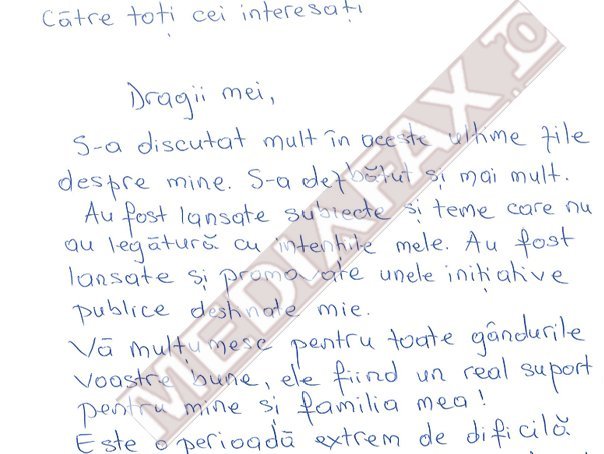 Către toți cei interesați
Dragii mei,
S-a discutat mult în aceste ultime zile
despre mine. S-a dezbătut și mai mult.
Au fost lansate subiecte și teme care nu
au legătură cu intențiile mele. Au fost
lansate și promovate unele inițiative
publice destinate mie.
Vă mulțumesc pentru toate gândurile
voastre bune, ele fiind un real suport
pentru mine și familia mea!
Este o perioadă extrem de dificilă
MEDIAFAX.ro